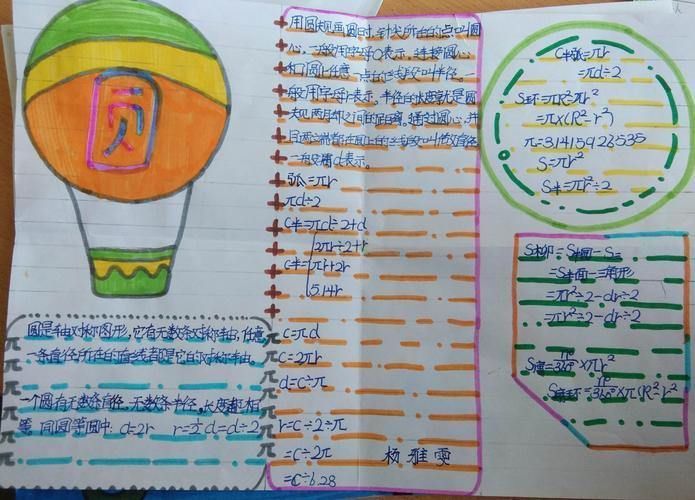 圆
圆是轴对称图形,它有无数条对称轴,任意
一条直径所在的直线都是它的对称轴。
一个圆有无数条直径,无数条半径,长度都相
等 同圆等圆中 d=2r r=½d=d÷2
用圆规画圆时,针尖所在的点叫圆
心,一般用字母O表示,连接圆心
和圆上任意一点的线段叫半径,一
般用字母r表示,半径的长度就是圆
规两脚之间的距离。通过圆心,并
且两端都在圆上的线段叫做直径
一般用d表示。
弧=πr
πd÷2
C半=πd÷2+d
2πr÷2+r
C半=πr+2r
5.14r
C=πd
C=2πr
d=C÷π
r=C÷2÷π
=C÷2π
=C÷6.28
杨雅雯
C半弧=πr
=πd÷2
S环=πR²-πr²
=π×(R²-r²)
π=3.1415923535
S=πr²
S半=πr²÷2
=S半圆-三角形
=πr²÷2-dr÷2
=πr²÷2-dr÷2
S扇=n°/360°×πr²
S扇环=n°/360°×π(R²-r²)
π
π
π
π
π
π
π
π
π
π